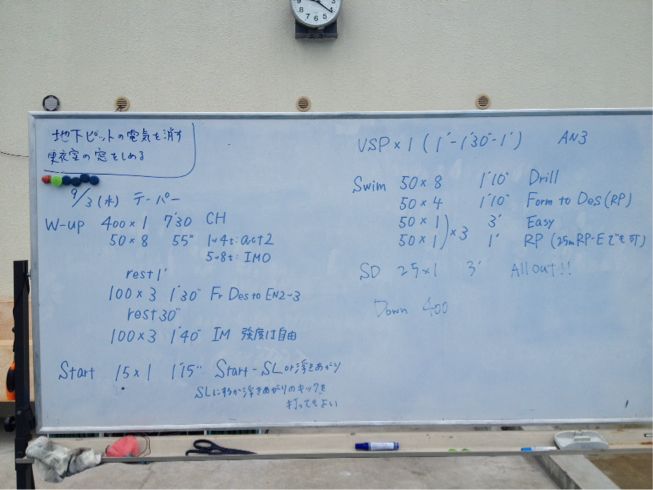 地下ピットの電気を消す
更衣室の窓をしめる
9/3(水) テーパー
W-up 400×1 7'30 CH
50×8 55" 1~4t: act2
5~8t: IMO
rest 1'
100×3 1'30" Fr Des to EN2-3
rest 30"
100×3 1'40" IM 強度は自由
Start 15×1 1'15" Start-SL or 浮きあがり
打ってもよい
VSP×1 (1'-1'30"-1') AN3
Swim 50×8 1'10" Drill
50×4 1'10" Form to Des (RP)
50×1 3' Easy
50×1 ×3 1' RP (25m RP-Eでも可)
SD 25×1 3' All out!!
Down 400